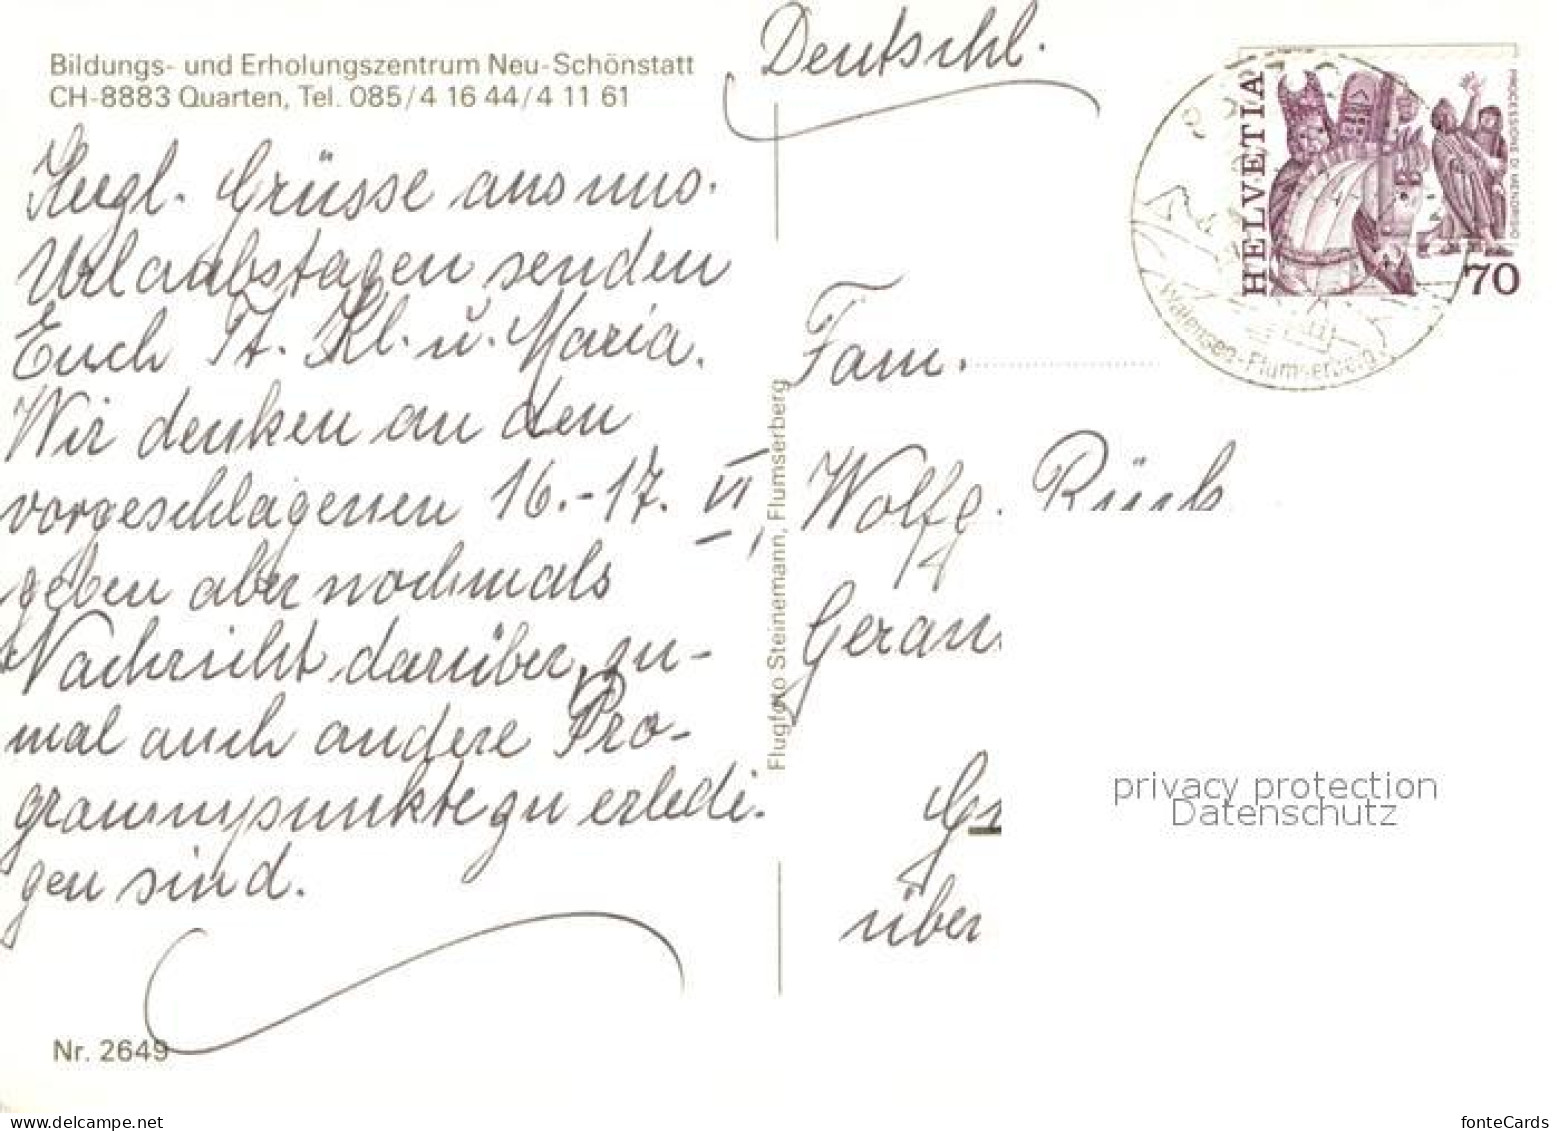 Bildungs- und Erholungszentrum Neu-Schönstatt
CH-8883 Quarten, Tel. 085/4 16 44/4 11 61
Grüsse aus uns.
Urlaubstagen senden
Euch Kl. u. Maria.
Wir denken an den
vorgeschlagenen 16.-17. VI,
geben aber nochmals
Nachricht darüber, zu-
mal auch andere Pro-
grammpunkte zu erledi-
gen sind.
Nr. 2649
Flugfoto Steinemann, Flumserberg
Deutschl.
HELVETIA
PROCESSIONE DI MENDRISIO
70
Walensee-Flumserberg
Fam.
Wolfg. Rück
Geran
über
privacy protection
Datenschutz
www.delcampe.net
fonteCards